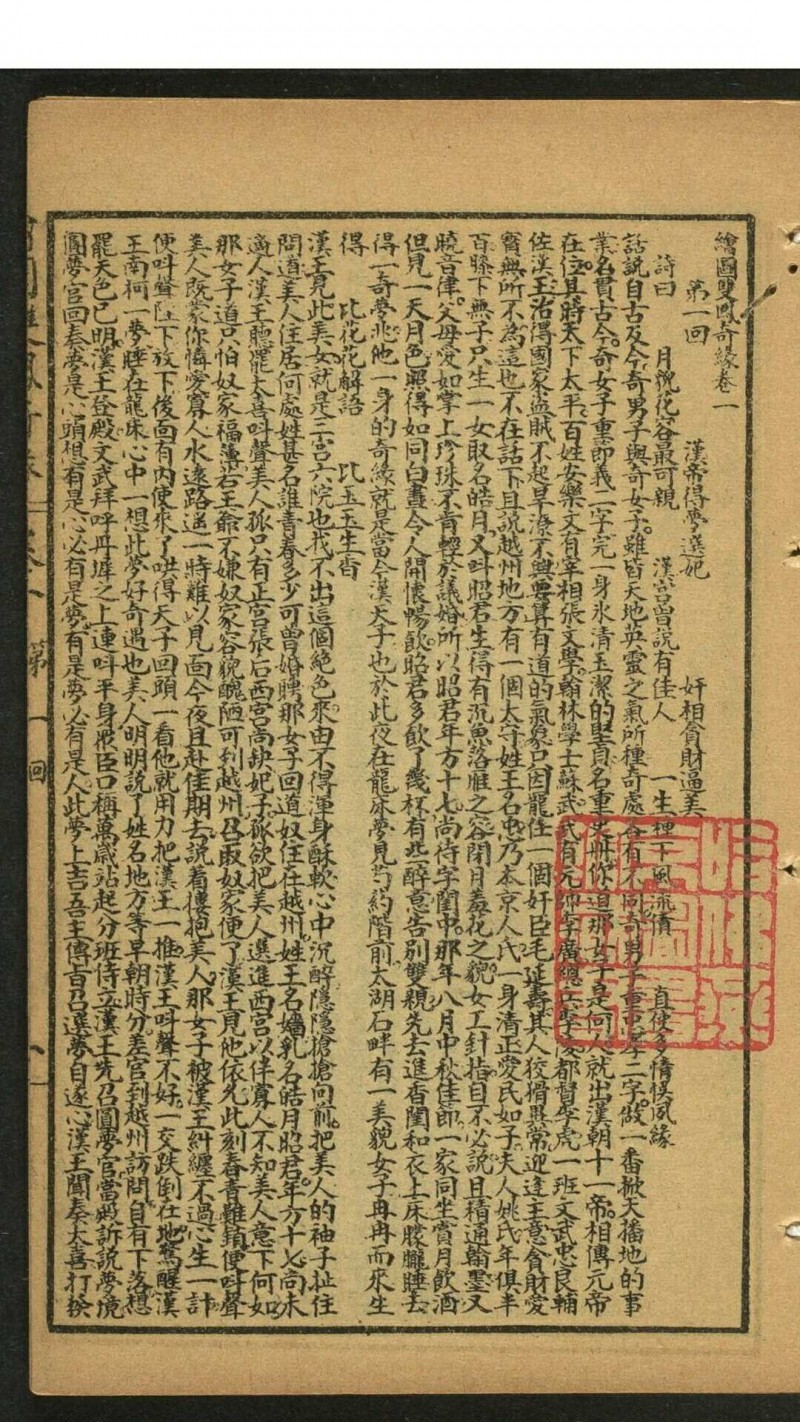 繪圖雙鳳奇緣卷一
第一回　漢帝得夢選妃　奸相貪財逼美
詩曰　月貌花容最可親　漢宮曾說有佳人　一生種下風流債　直使多情悞夙緣
話說自古及今奇男子與奇女子雖皆天地英靈之氣所種奇處各有不同奇男子重忠孝二字做一番掀天揭地的事
業名貫古今奇女子重節義二字完一身氷清玉潔的堅貞名重史冊你道那女子是何人就出漢朝十一帝相傳元帝
在位其時天下太平百姓安樂文有宰相張文學翰林學士蘇武武有元帥李廣總兵李陵都督李虎一班文武忠良輔
佐漢王治得國家盗賊不起旱澇不興要算有道的氣象只因寵任一個奸臣毛延壽其人狡猾異常迎逢王意貪財愛
寳無所不為這也不在話下且說越州地方有一個太守姓王名忠乃本京人氏一身清正愛民如子夫人姚氏年俱半
百膝下無子只生一女取名皓月又呌昭君生得有沉魚落雁之容閉月羞花之貌女工針指自不必說且精通翰墨又
曉音律父母愛如掌上珍珠不肯輕於議婚所以昭君年方十七尚待字閨中那年八月中秋佳節一家同坐賞月飲酒
但見一天月色照得如同白晝令人開懷暢飲昭君多飲了幾杯有些醉意告別雙親先去進香閨和衣上床朦朧睡去
得一奇夢兆他一身的奇緣就是當今漢天子也於此夜在龍床夢見芍葯階前太湖石畔有一美貌女子冉冉而來生
得　比花花解語　比玉玉生香
漢王見此美女就是三宮六院也找不出這個絶色來由不得渾身酥軟心中沉醉隱隱搶搶向前把美人的袖子扯住
問道美人住居何處姓甚名誰青春多少可曾婚聘那女子回道奴住在越州姓王名嬙乳名皓月昭君年方十七尚未
適人漢王聽罷大喜呌聲美人孤只有正宮張后西宮尚缺妃子孤欲把美人選進西宮以伴寡人不知美人意下何如
那女子道只怕奴家福薄若王爺不嫌奴家容貌醜陋可到越州召取奴家便了漢王見他依允此刻春青難鎖便呌聲
美人既蒙你憐愛寡人水遠路遥一時難以見面今夜且赴佳期去說着摟抱美人那女子被漢王糾纏不過心生一計
便呌聲陛下放下後面有內使來了哄得天子回頭一看他就用力把漢王一推漢王呌聲不好一交跌倒在地驚醒漢
王南柯一夢睡在龍床心中一想此夢好奇遇也美人明明說了姓名地方等早朝時分差官到越州訪問自有下落想
罷天色已明漢王登殿文武拜呼丹墀之上連呌平身眾臣口稱萬歲站起分班侍立漢王先召圓夢官當殿訴說夢境
圓夢官回奏夢是心頭想有是心必有是夢有是夢必有是人此夢上吉吾王傳旨召選夢自遂心漢王聞奏大喜打發
第一回